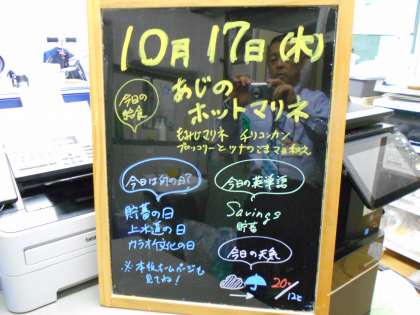 10月17日(木)
今日の
給食
あじの
ホットマリネ
もみじマリネ チリコンカン
ブロッコリーとツナのごまマヨ和え
今日は何の日?
貯蓄の日
上水道の日
カラオケ文化の日
※本校ホームページも
見てね!
今日の英単語
Savings
貯蓄
今日の天気
20/12℃
brother